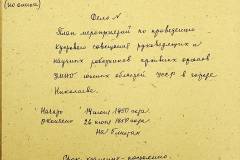 (по описи)
Дело N
План мероприятий по проведению
кустового совещания руководящих и
научных работников архивных органов
УМВД южных областей УССР в городе
Николаеве.
"Начато 19 июня 1950 года
Окончено 26 июня 1950 года
На листах
Срок хранения - постоянно